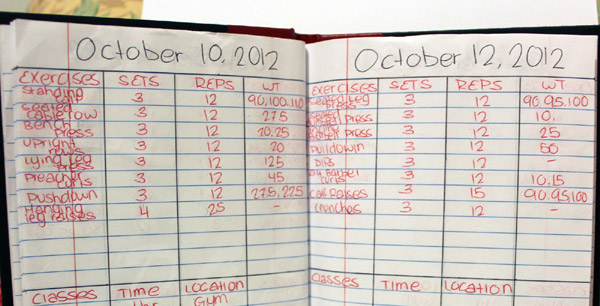 October 10, 2012
Exercises SETS REPS WT
standing calf 3 12 90,100,110
seated cable row 3 12 27.5
Bench press 3 12 20,25
upright rows 3 12 20
Lying leg press 3 12 125
Preacher curls 3 12 45
Pushdown 3 12 27.5, 22.5
Hanging leg raises 4 25 -
Classes Time Location
Gym
October 12, 2012
Exercises SETS REPS WT
Seated Leg Press 3 12 90,95,100
press 3 12 10,
press 3 12 25
Pulldown 3 12 50
DIPS 3 12 -
Barbell curls 3 12 10,15
Calf Raises 3 15 90,95,100
crunches 3 12 -
Classes Time Location